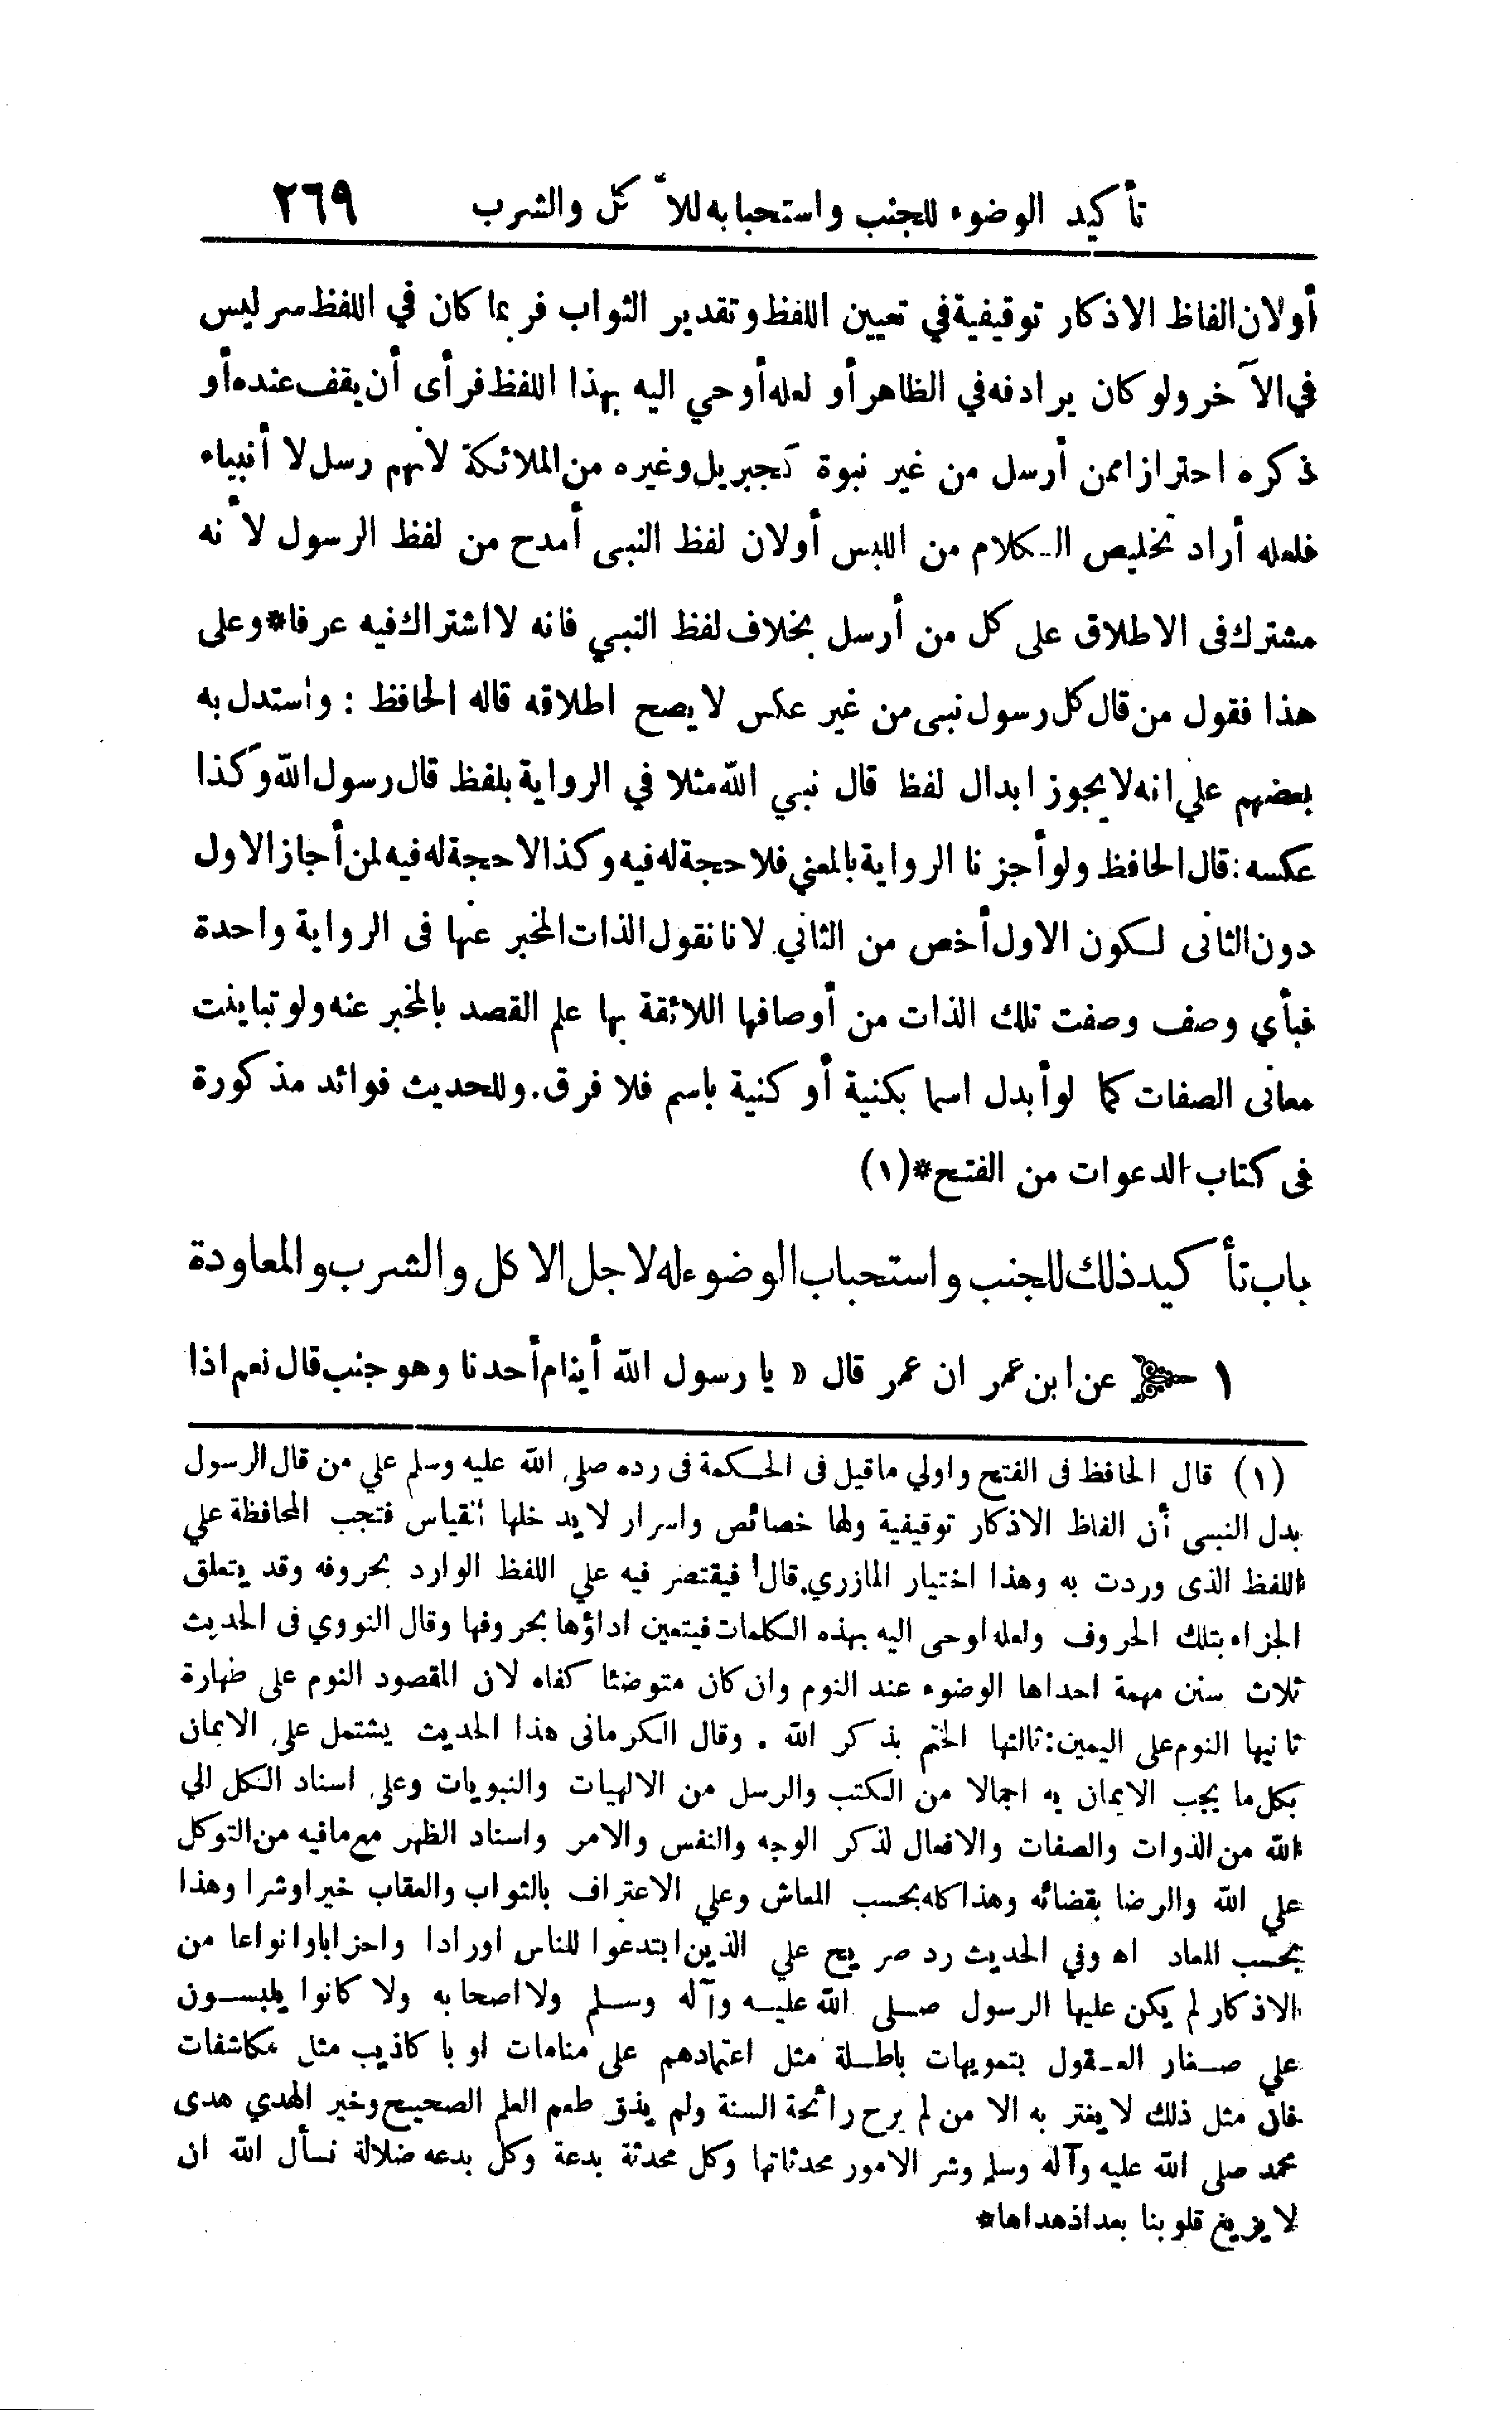 تأكيد الوضوء للجنب واستحبابه للأكل والشرب ٢٦٩
أولان الفاظ الاذكار توقيفية في تعيين اللفظ وتقدير الثواب فربما كان في اللفظ سر ليس
في الآخر ولو كان يرادفه في الظاهر أو لعله أوحي اليه بهذا اللفظ فرأى أن يقف عنده أو
ذكره احترازا ممن أرسل من غير نبوة كجبريل وغيره من الملائكة لانهم رسل لا أنبياء
فلعله أراد تخليص الكلام من اللبس أولان لفظ النبى أمدح من لفظ الرسول لأنه
مشترك فى الاطلاق على كل من أرسل بخلاف لفظ النبي فانه لا اشتراك فيه عرفا* وعلى
هذا فقول من قال كل رسول نبى من غير عكس لا يصح اطلاقه قاله الحافظ : واستدل به
بعضهم علي انه لا يجوز ابدال لفظ قال نبي الله مثلا في الرواية بلفظ قال رسول الله وكذا
عكسه : قال الحافظ ولو أجزنا الرواية بالمعني فلا حجة له فيه وكذا لا حجة له فيه لمن أجاز الاول
دون الثانى لكون الاول أخص من الثاني لانا نقول الذات المخبر عنها فى الرواية واحدة
فبأي وصف وصفت تلك الذات من أوصافها اللائقة بها علم القصد بالمخبر عنه ولو تباينت
معانى الصفات كما لو أبدل اسما بكنية أو كنية باسم فلا فرق . وللحديث فوائد مذكورة
فى كتاب الدعوات من الفتح* (١)
باب تأكيد ذلك للجنب واستحباب الوضوء له لاجل الاكل والشرب والمعاودة
١ عن ابن عمر ان عمر قال « يا رسول الله أينام أحدنا وهو جنب قال نعم اذا
(١) قال الحافظ فى الفتح واولي ماقيل فى الحكمة فى رده صلى الله عليه وسلم علي من قال الرسول
بدل النبى أن الفاظ الاذكار توقيفية ولها خصائص واسرار لا يدخلها القياس فتجب المحافظة علي
اللفظ الذى وردت به وهذا اختيار المازري . قال فيقتصر فيه علي اللفظ الوارد بحروفه وقد يتعلق
الجزاء بتلك الحروف ولعله اوحى اليه بهذه الكلمات فيتعين اداؤها بحروفها وقال النووي فى الحديث
ثلاث سنن مهمة احداها الوضوء عند النوم وان كان متوضئا كفاه لان المقصود النوم على طهارة
ثانيها النوم على اليمين : ثالثها الختم بذكر الله . وقال الكرمانى هذا الحديث يشتمل على الايمان
بكل ما يجب الايمان به اجمالا من الكتب والرسل من الالهيات والنبويات وعلى اسناد الكل الي
الله من الذوات والصفات والافعال لذكر الوجه والنفس والامر واسناد الظهر مع مافيه من التوكل
علي الله والرضا بقضائه وهذا كله بحسب المعاش وعلي الاعتراف بالثواب والعقاب خيرا وشرا وهذا
بحسب المعاد اه وفي الحديث رد صريح علي الذين ابتدعوا للناس اورادا واحزابا وانواعا من
الاذكار لم يكن عليها الرسول صلى الله عليه وآله وسلم ولا اصحابه ولا كانوا يلبسون
علي صغار العقول بتمويهات باطلة مثل اعتمادهم على منامات او باكاذيب مثل مكاشفات
فان مثل ذلك لا يغتر به الا من لم يرح رائحة السنة ولم يذق طعم العلم الصحيح وخير الهدي هدى
محمد صلى الله عليه وآله وسلم وشر الامور محدثاتها وكل محدثة بدعة وكل بدعه ضلالة نسأل الله ان
لا يزيغ قلوبنا بعد اذ هداها*